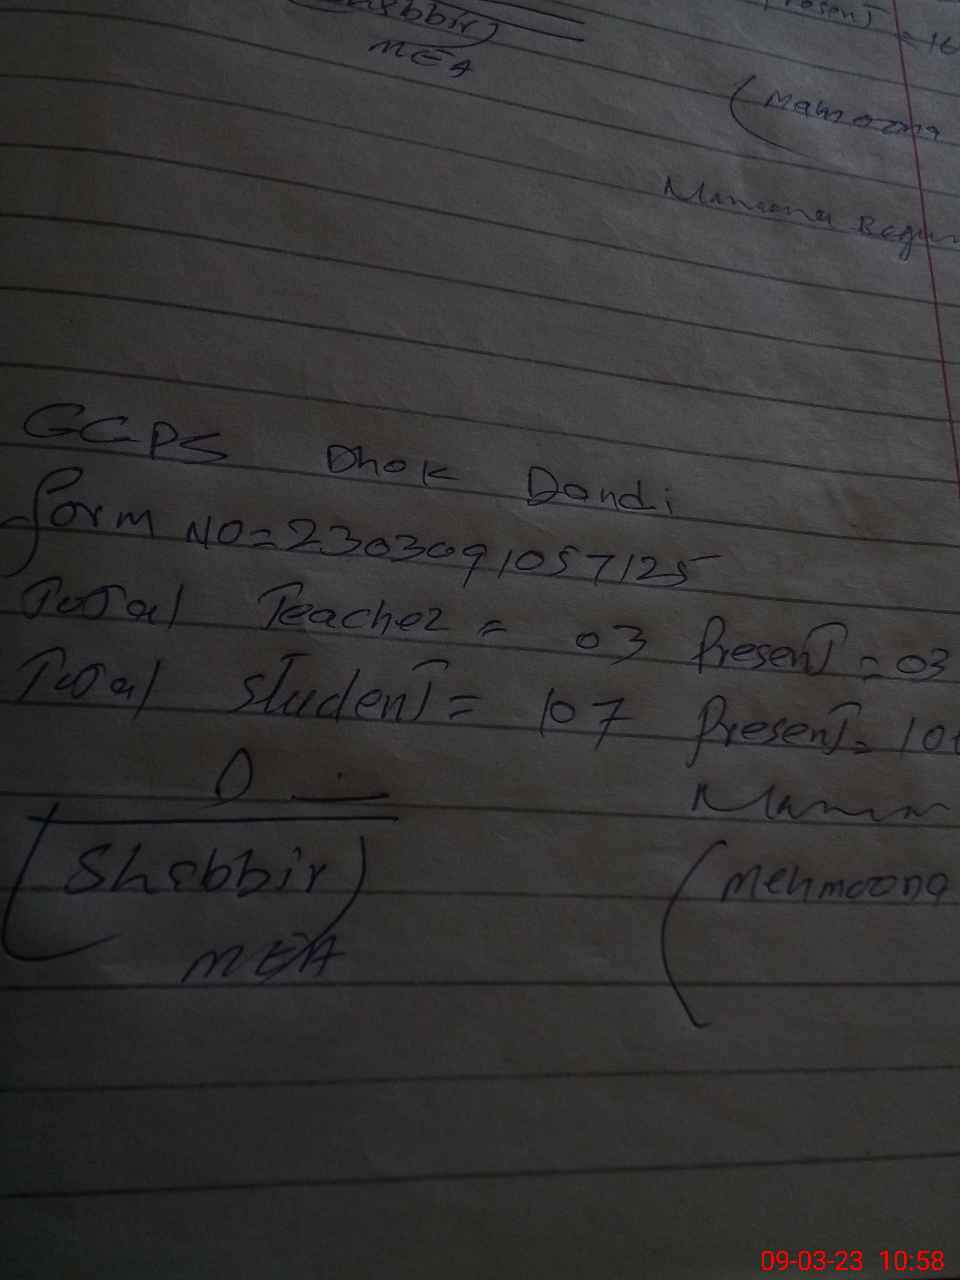 Shabbir)
Present = 16
MEA
(Mamoona
Mamoona Begum
GGPS Dhok Dandi
form NO=2303091057125
Total Teacher = 03 Present = 03
Total student = 107 Present = 10
(Shabbir)
(Mehmoona
MEA
09-03-23 10:58